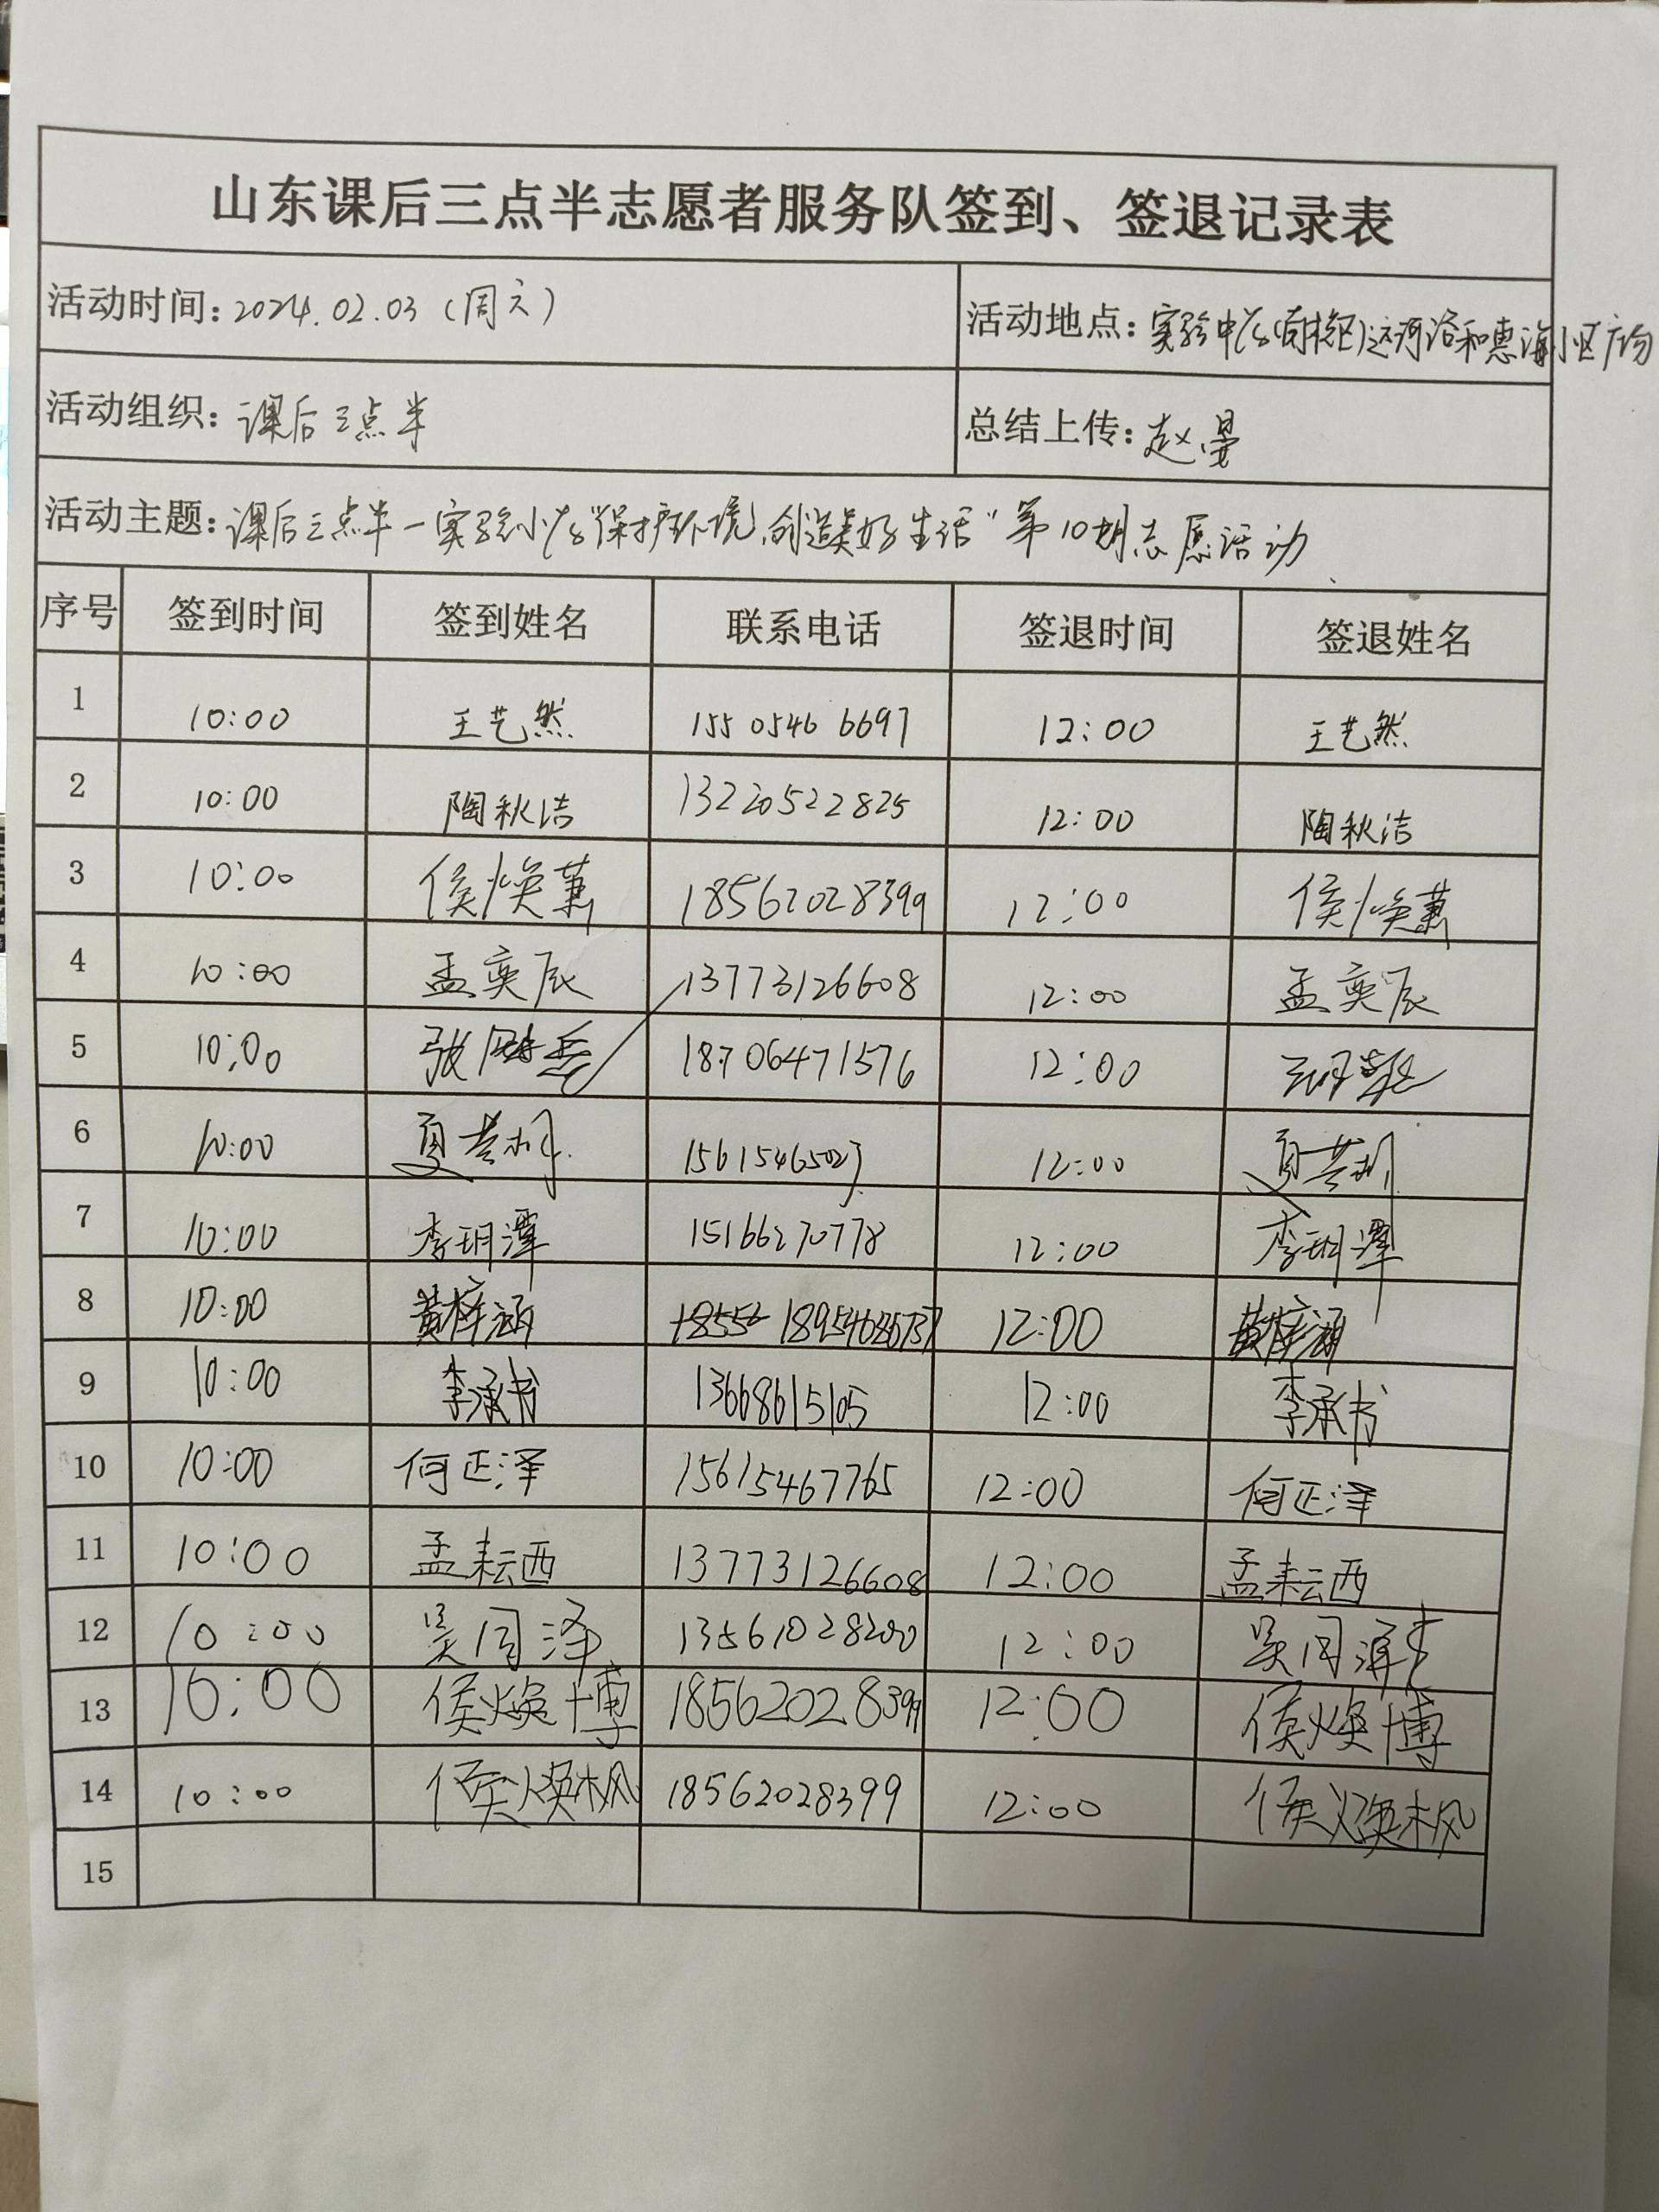 山东课后三点半志愿者服务队签到、签退记录表
活动时间：2024.02.03（周六） 活动地点：实验中学(南校区)运河沿和惠海小区广场
活动组织：课后三点半 总结上传：赵曼
活动主题：课后三点半—实验小学"保护环境,创造美好生活"第10期志愿活动
序号 签到时间 签到姓名 联系电话 签退时间 签退姓名
1 10:00 王艺然 15505466697 12:00 王艺然
2 10:00 陶秋洁 13220522825 12:00 陶秋洁
3 10:00 侯焕萧 18562028399 12:00 侯焕萧
4 10:00 孟奕辰 13773126608 12:00 孟奕辰
5 10:00 张 18706471576 12:00
6 10:00 夏 15615465027 12:00 夏
7 10:00 李玥潭 15166270778 12:00 李玥潭
8 10:00 黄梓涵 18954686737 12:00 黄梓涵
9 10:00 李承书 13668615105 12:00 李承书
10 10:00 何正泽 15615467765 12:00 何正泽
11 10:00 孟耘西 13773126608 12:00 孟耘西
12 10:00 吴同泽 13561028200 12:00 吴同泽
13 10:00 侯焕博 18562028399 12:00 侯焕博
14 10:00 侯焕枫 18562028399 12:00 侯焕枫
15